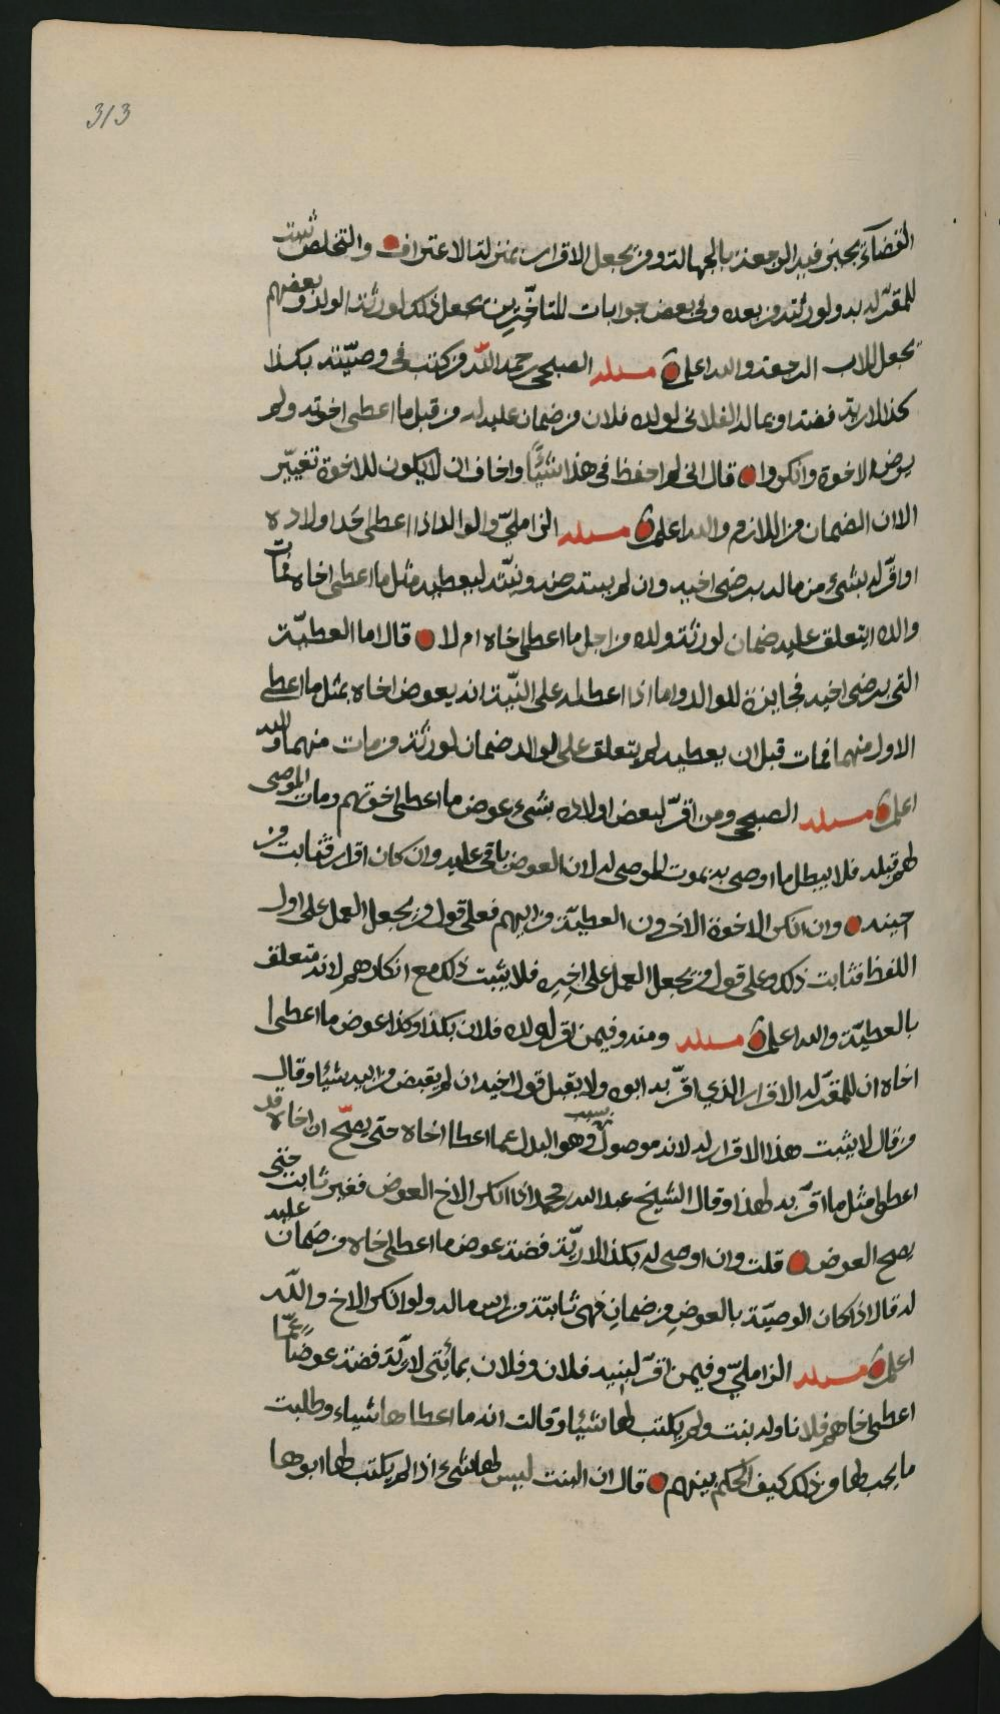 313
القضاء يجيز فيه الرجعة بالجهالة ومن يجعل الاقرار بمنزلة الاعتراف والتخلص ثبت
للمقر له به ولورثته من بعده وفي بعض جوابات المتأخرين يجعل ذلك لورثة الولد وبعضهم
يجعل للاب الرجعة والله اعلم مسئلة الصبحي رحمه الله من كتب في وصيته بكذا
كذا لارية فضة او بماله الفلاني لولده فلان من ضمان عليه له من قبل ما اعطى اخوته ولم
يرض الاخوة وانكروا قال اني لم احفظ في هذا شيئًا واخاف ان لا يكون للاخوة تغيير
الا ان الضمان من اللازم والله اعلم مسئلة الزاملي والوالد اذا اعطى احد اولاده
او اقر له بشيء من ماله برضى اخيه وان لم يسترضه ونيته ليعطيه مثل ما اعطى اخاه فمات
والده ايتعلق عليه ضمان لورثة ولده من اجل ما اعطى اخاه ام لا قال اما العطية
التي برضى اخيه فجايزة للوالد واما اذا اعطا له على النية انه يعوض اخاه بمثل ما اعطى
الاول منهما فمات قبل ان يعطيه لم يتعلق على الوالد ضمان لورثة من مات منهما والله
اعلم مسئلة الصبحي ومن اقر لبعض اولاده بشيء عوض ما اعطى اخوتهم ومات الموصى
لهم قبله فلا يبطل ما اوصى به بموت الموصى له لان العوض باقي عليه وان كان اقرار فثابت من
حينه وان انكر الاخوة الاخرون العطية من ابيهم فعلى قول من يجعل العمل على اول
اللفظ فثابت ذلك وعلى قول من يجعل العمل على اخره فلا يثبت ذلك مع انكارهم لانه متعلق
بالعطية والله اعلم مسئلة ومنه وفيمن اقر لولده فلان بكذا وكذا عوض ما اعطى
اخاه ان للمقر له الاقرار الذي اقر به ابوه ولا يقبل قول اخيه ان لم يقبض من ابيه شيئا وقال
من قال لا يثبت هذا الاقرار له لانه موصول بسبب وهو البدل عما اعطا اخاه حتى يصح ان اخاه قد
اعطى مثل ما اقر به لهذا وقال الشيخ عبد الله بن محمد اذا انكر الاخ العوض فغير ثابت حتى
يصح العوض قلت وان اوصى له بكذا لارية فضة عوض ما اعطى اخاه من ضمان عليه
له قال اذا كان الوصية بالعوض من ضمان فهي ثابتة من راس ماله ولو انكر الاخ والله
اعلم مسئلة الزاملي وفيمن اقر لبنيه فلان وفلان بمائتي لارية فضة عوضًا عما
اعطى اخاهم فلانا وله بنت ولم يكتب لها شيئا وقالت انه ما اعطاها شياء وطلبت
ما يجب لها من ذلك كيف الحكم بينهم قال ان البنت ليس لها شيء اذا لم يكتب لها ابوها